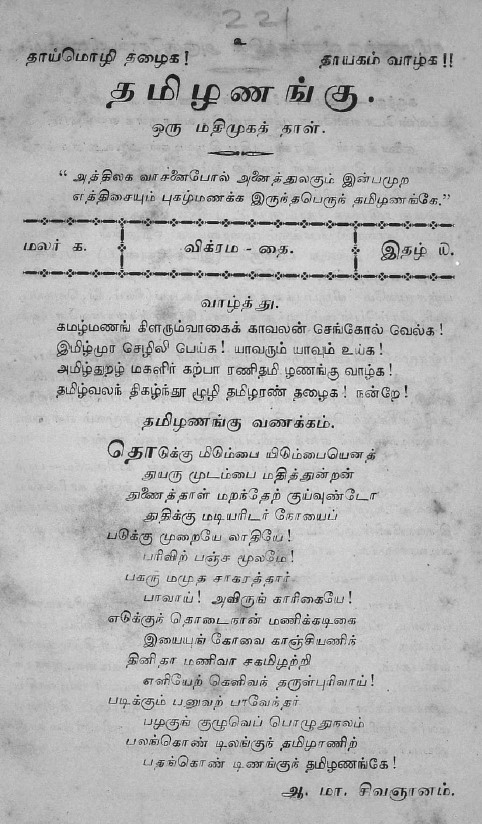 221
உ
தாய்மொழி தழைக! தாயகம் வாழ்க!!
தமிழணங்கு.
ஒரு மதிமுகத் தாள்.
“ அத்திலக வாசனைபோல் அனைத்துலகும் இன்பமுற
எத்திசையும் புகழ்மணக்க இருந்தபெருந் தமிழணங்கே.”
மலர் க. விக்ரம - தை. இதழ் ௰.
வாழ்த்து.
கமழ்மணங் கிளரும்வாகைக் காவலன் செங்கோல் வெல்க!
இமிழ்முர செழிலி பெய்க! யாவரும் யாவும் உய்க!
அமிழ்துறழ் மகளிர் கற்பா ரணிதமி ழணங்கு வாழ்க!
தமிழ்வலந் திகழ்ந்தூ ழூழி தமிழரண் தழைக! நன்றே!
தமிழணங்கு வணக்கம்.
தொடுக்கு மிடும்பை யிடும்பையெனத்
துயரு முடம்பை மதித்துன்றன்
துணைத்தாள் மறந்தேற் குய்வுண்டோ
துதிக்கு மடியரிடர் நோயைப்
படுக்கு முறையே லாதியே!
பரிவிற் பஞ்ச மூலமே!
பகரு மமுத சாகரத்தார்
பாலாய்! அவிருங் காரிகையே!
எடுக்குந் தொடைநான் மணிக்கடிகை
இயையுங் கோவை காஞ்சியணிந்
தினிதா மணிவா சகமிழற்றி
எளியேற் கெளிவந் தருள்புரிவாய்!
படிக்கும் பனுவற் பாவேந்தர்
பழகுங் குழுவெப் பொழுதுநலம்
பலங்கொண் டிலங்குந் தமிழாணிற்
பதங்கொண் டிணங்குந் தமிழணங்கே!
ஆ. மா. சிவஞானம்.